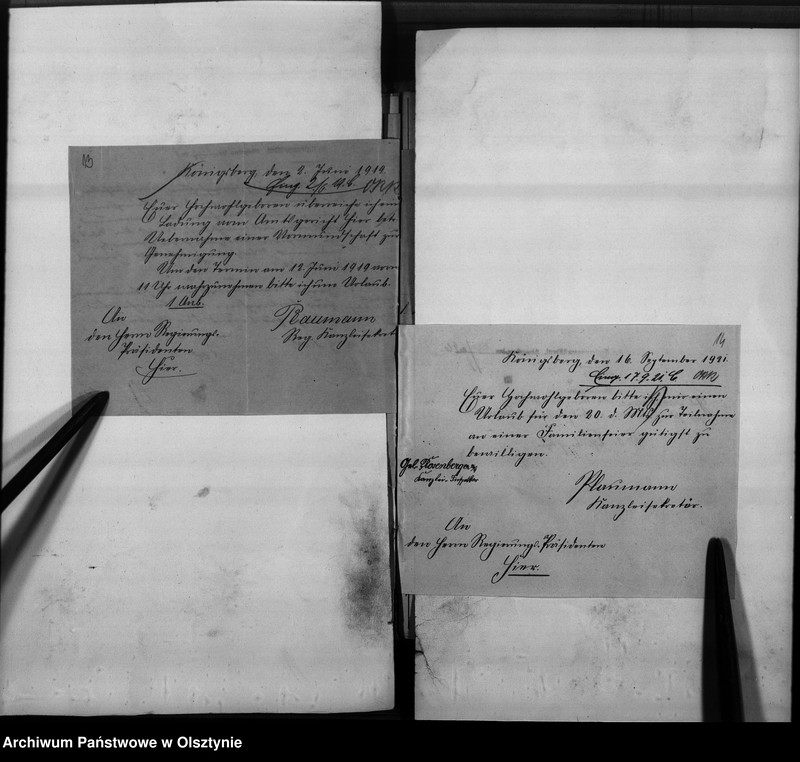 13
Königsberg, den 2. Juni 1919.
Euer Hochwohlgeboren überreiche ich eine
Ladung vom Amtsgericht hier betr.
Uebernahme einer Vormundschaft zur
Genehmigung.
Um den Termin am 12. Juni 1919 vorm
11 Uhr wahrzunehmen bitte ich um Urlaub.
1 Anl.
Plaumann
Reg. Kanzleisekret
An
den Herrn Regierungs-
Präsidenten
Hier.
14
Königsberg, den 16. September 1921.
Euer Hochwohlgeboren bitte ich mir einen
Urlaub für den 20. d. Mts zur Teilnahme
an einer Familienfeier gütigst zu
bewilligen.
Gel. Rosenberger
Kanzlei-Inspektor
Plaumann
Kanzleisekretär.
An
den Herrn Regierungs-Präsidenten
Hier.
Archiwum Państwowe w Olsztynie